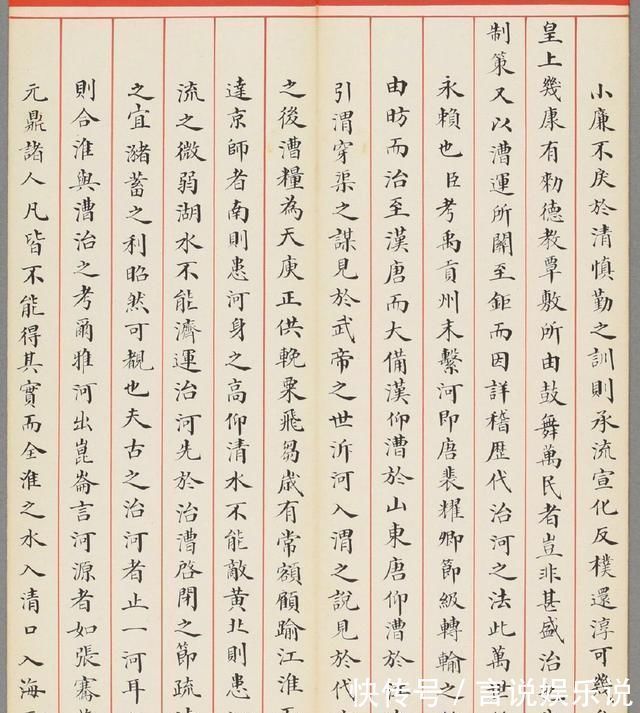 小廉不戾於清慎勤之訓則承流宣化反樸還淳可幾
皇上幾康有勑德教覃敷所由鼓舞萬民者豈非甚盛治
制策又以漕運所關至鉅而因詳稽歷代治河之法此萬
永賴也臣考禹貢州末繫河即唐裴耀卿節級轉輸之
由昉而治至漢唐而大備漢仰漕於山東唐仰漕於
引渭穿渠之謀見於武帝之世泝河入渭之說見於代
之後漕糧為天庾正供輓粟飛芻歲有常額顧踰江淮
達京師者南則患河身之高仰清水不能敵黃北則患
流之微弱湖水不能濟運治河先於治漕啓閉之節疏
之宜瀦蓄之利昭然可覩也夫古之治河者止一河耳
則合淮與漕治之考爾雅河出崑崙言河源者如張騫
元鼎諸人凡皆不能得其實而全淮之水入清口入海
快传号/言说娱乐说